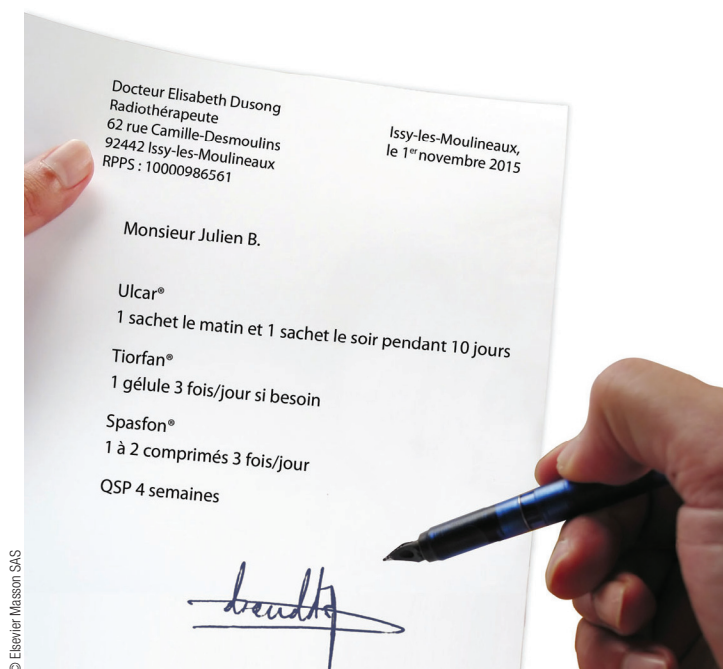 Docteur Elisabeth Dusong
Radiothérapeute
62 rue Camille-Desmoulins
92442 Issy-les-Moulineaux
RPPS : 10000986561
Issy-les-Moulineaux,
le 1er novembre 2015
Monsieur Julien B.
Ulcar®
1 sachet le matin et 1 sachet le soir pendant 10 jours
Tiorfan®
1 gélule 3 fois/jour si besoin
Spasfon®
1 à 2 comprimés 3 fois/jour
QSP 4 semaines
© Elsevier Masson SAS